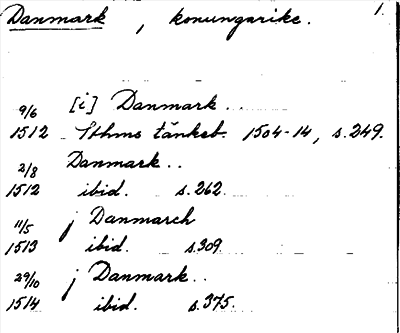 Danmark, konungarike. 1.
9/6 [i] Danmark...
1512 Sthms tänkeb. 1504-14, s.249.
2/8 Danmark..
1512 ibid. s.262.
11/5 j Danmarch
1513 ibid. s.309.
29/10 j Danmark..
1514 ibid. s.375.